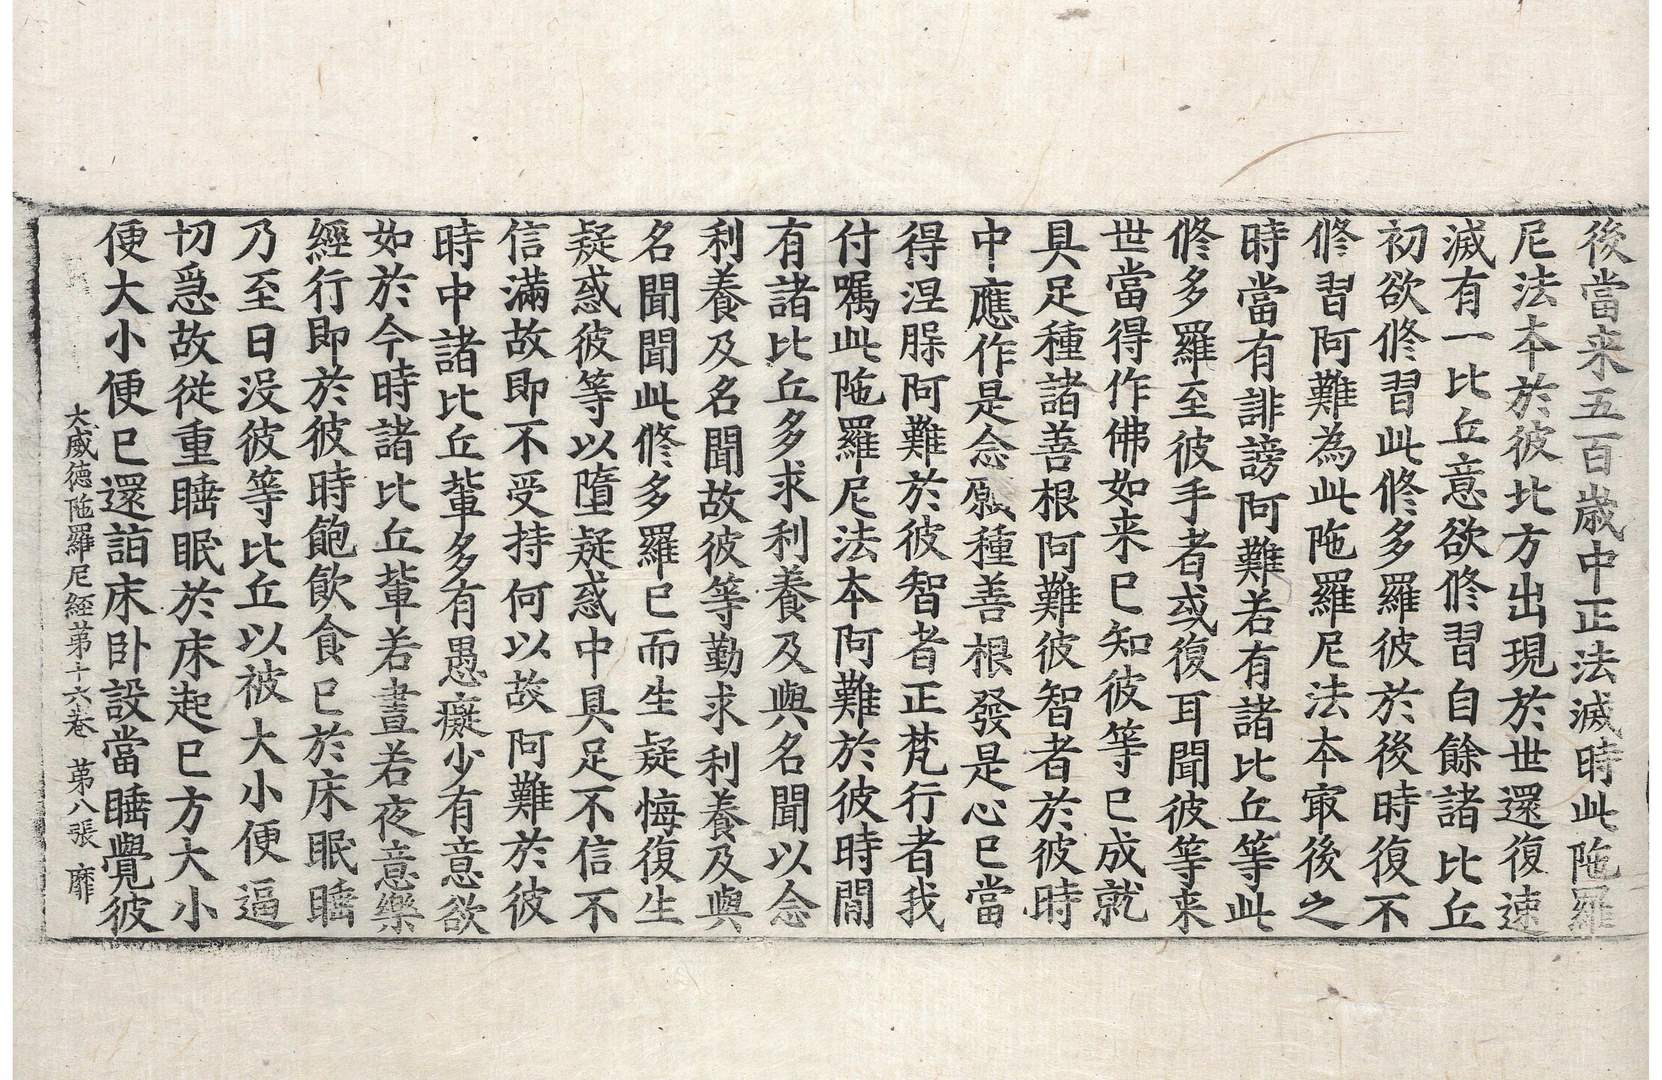 後當来五百歲中正法滅時此陁羅
尼法本於彼北方出現於世還復速
滅有一比丘意欲修習自餘諸比丘
初欲修習此修多羅彼於後時復不
修習阿難為此陁羅尼法本㝡後之
時當有誹謗阿難若有諸比丘等此
修多羅至彼手者或復耳聞彼等来
世當得作佛如来已知彼等已成就
具足種諸善根阿難彼智者於彼時
中應作是念願種善根發是心已當
得涅槃阿難於彼智者正梵行者我
付嘱此陁羅尼法本阿難於彼時間
有諸比丘多求利養及與名聞以念
利養及名聞故彼等勤求利養及與
名聞聞此修多羅已而生疑悔復生
疑惑彼等以墮疑惑中具足不信不
信滿故即不受持何以故阿難於彼
時中諸比丘輩多有愚癡少有意欲
如於今時諸比丘輩若晝若夜意樂
經行即於彼時飽飲食已於床眠睡
乃至日没彼等比丘以被大小便逼
切急故從重睡眠於床起已方大小
便大小便已還詣床卧設當睡覺彼
大威德陁羅尼經第十六卷 第八張 靡